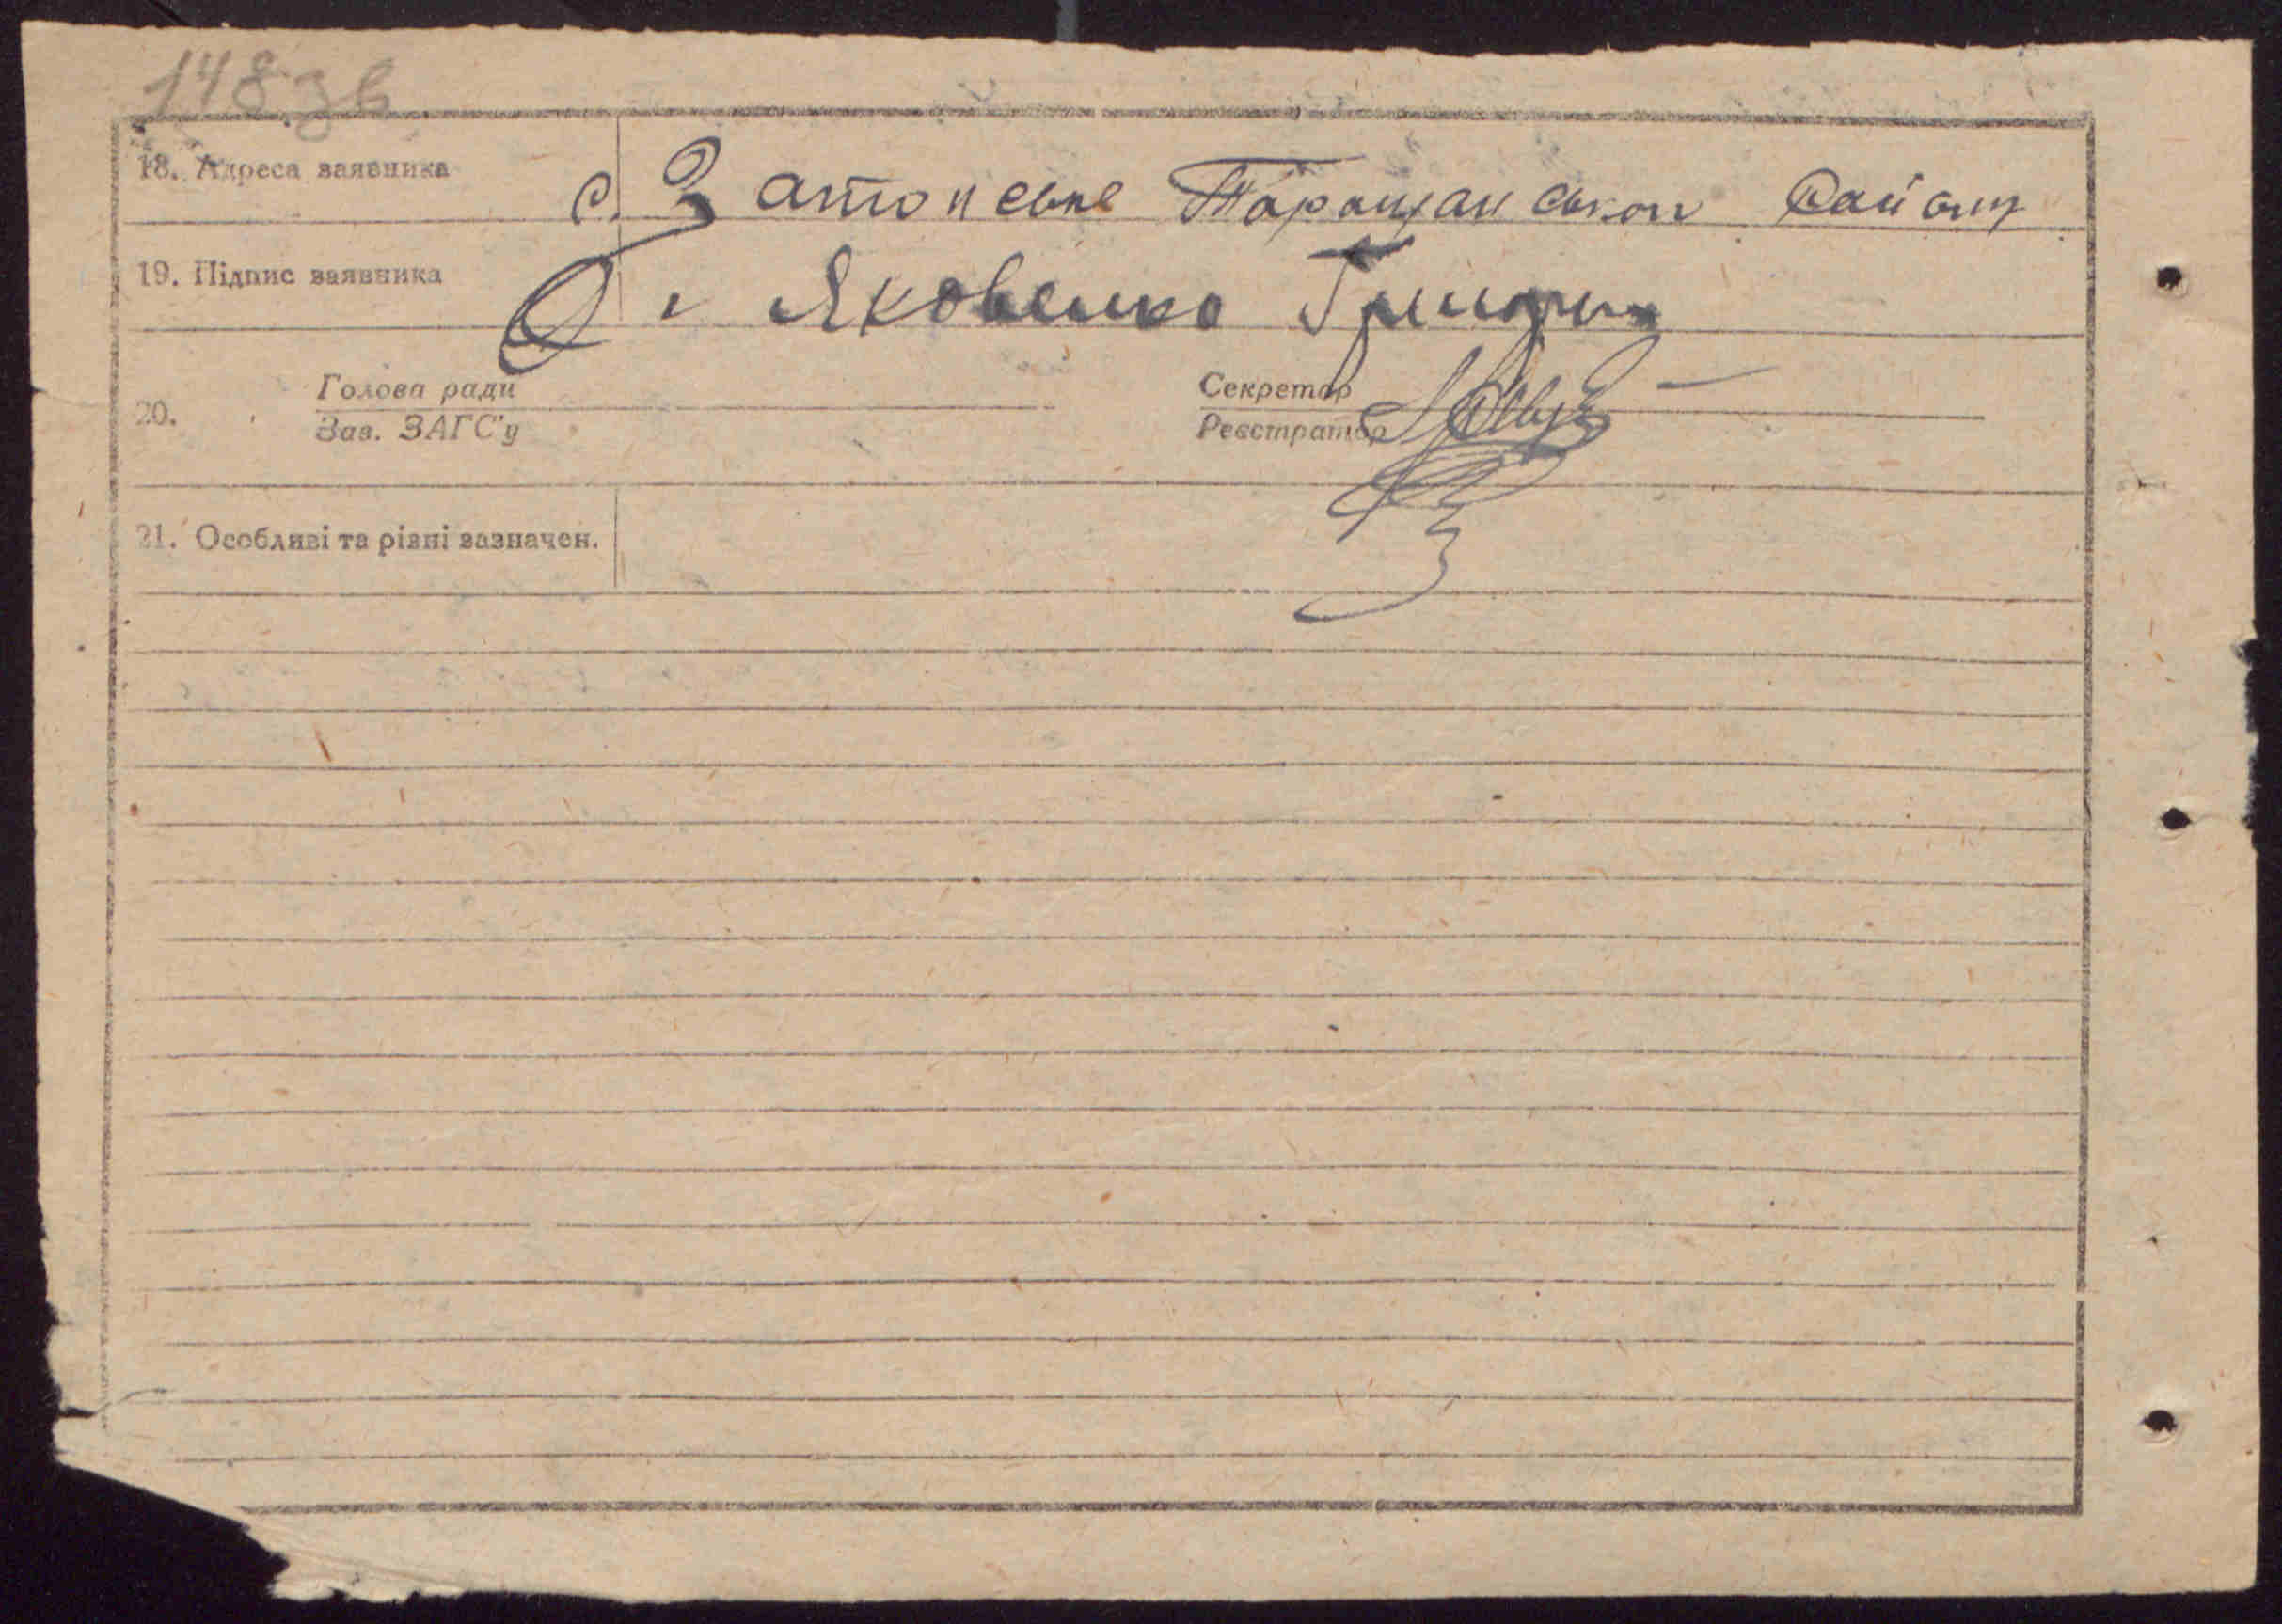 148 зв
18. Адреса заявника с. Затонське Таращанськои району
19. Підпис заявника Яковенко Григорий
20. Голова ради Секретар
Зав. ЗАГС'у Реєстратор
21. Особливі та різні зазначен.